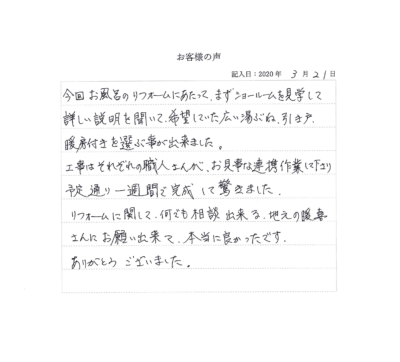 お客様の声
記入日：2020年 3月21日
今回お風呂のリフォームにあたって、まずショールームを見学して
詳しい説明を聞いて、希望していた広い湯ぶね、引き戸、
暖房付きを選ぶ事が出来ました。
工事はそれぞれの職人さんが、お見事な連携作業で
予定通り一週間で完成して驚きました。
リフォームに関して、何でも相談出来る、地元の
さんにお願い出来て、本当に良かったです。
ありがとうございました。